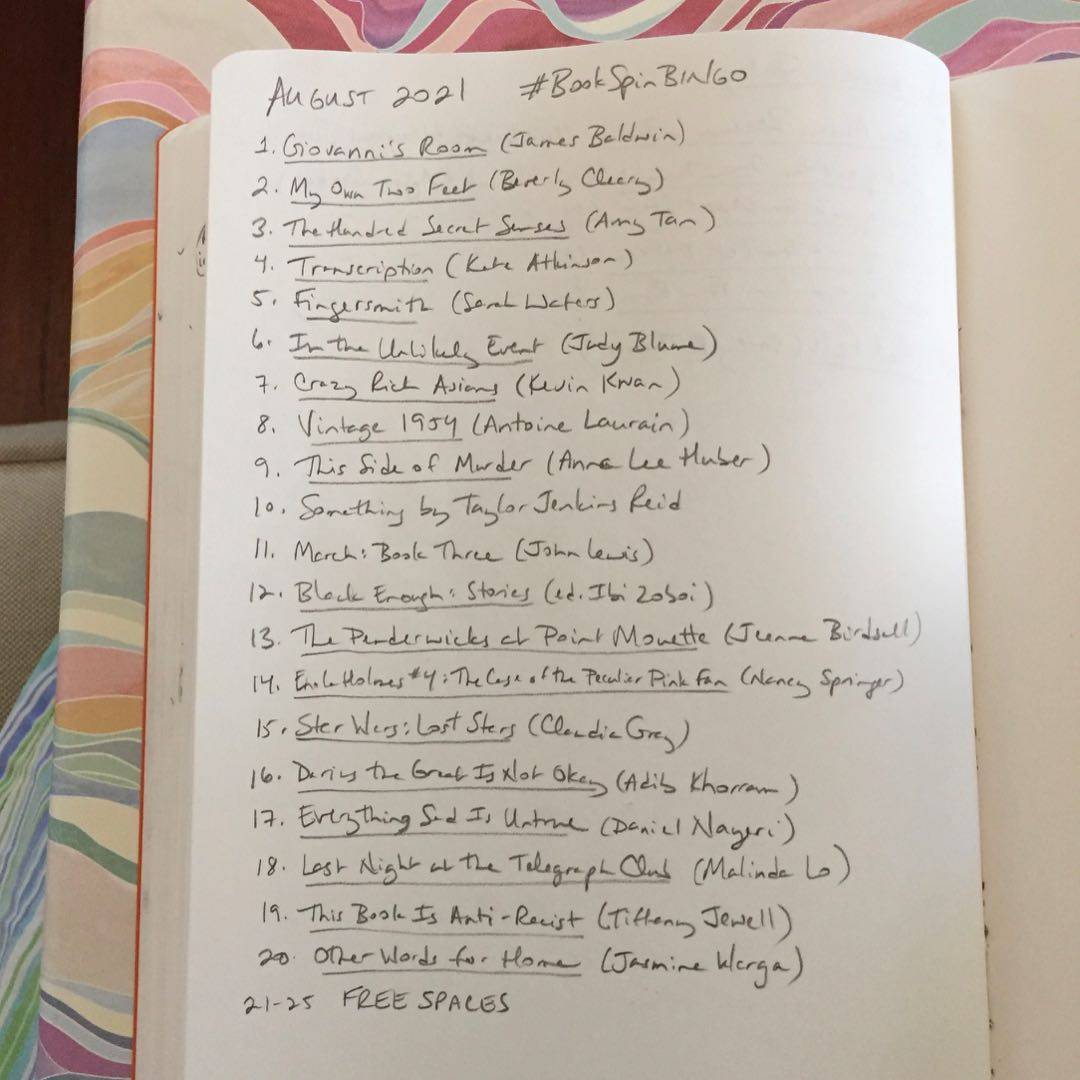 August 2021 #BookSpinBINGO
1. Giovanni's Room (James Baldwin)
2. My Own Two Feet (Beverly Cleary)
3. The Hundred Secret Senses (Amy Tan)
4. Transcription (Kate Atkinson)
5. Fingersmith (Sarah Waters)
6. In the Unlikely Event (Judy Blume)
7. Crazy Rich Asians (Kevin Kwan)
8. Vintage 1954 (Antoine Laurain)
9. This Side of Murder (Anna Lee Huber)
10. Something by Taylor Jenkins Reid
11. March: Book Three (John Lewis)
12. Black Enough: Stories (ed. Ibi Zoboi)
13. The Penderwicks at Point Mouette (Jeanne Birdsall)
14. Enola Holmes #4: The Case of the Peculiar Pink Fan (Nancy Springer)
15. Star Wars: Lost Stars (Claudia Gray)
16. Darius the Great Is Not Okay (Adib Khorram)
17. Everything Sad Is Untrue (Daniel Nayeri)
18. Last Night at the Telegraph Club (Malinda Lo)
19. This Book Is Anti-Racist (Tiffany Jewell)
20. Other Words for Home (Jasmine Warga)
21-25 FREE SPACES